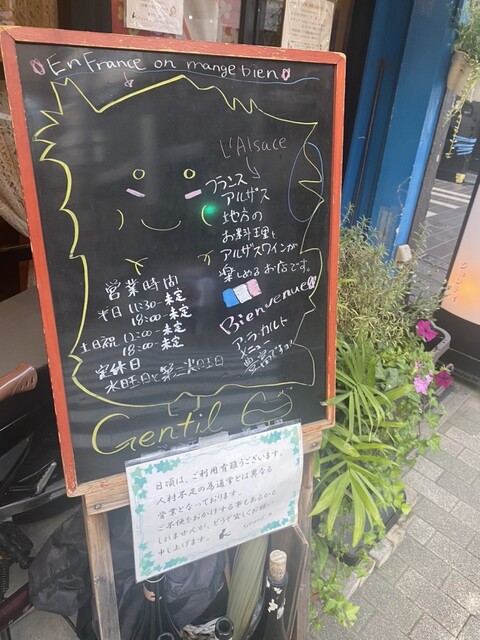 En France on mange bien
L'Alsace
フランス
アルザス
地方の
お料理と
アルザスワインが
楽しめるお店です。
Bienvenue!!
ア・ラ・カルト
メニュー
豊富です!
営業時間
平日 11:30-未定
18:00-未定
土日祝 12:00-未定
18:00-未定
定休日
水曜日と第三火曜日
Gentil
日頃は、ご利用有難うございます。
人材不足の為通常とは異なる
営業となっております。
ご不便をおかけする事もあるかも
しれませんが、どうぞ宜しくお願い
申し上げます。